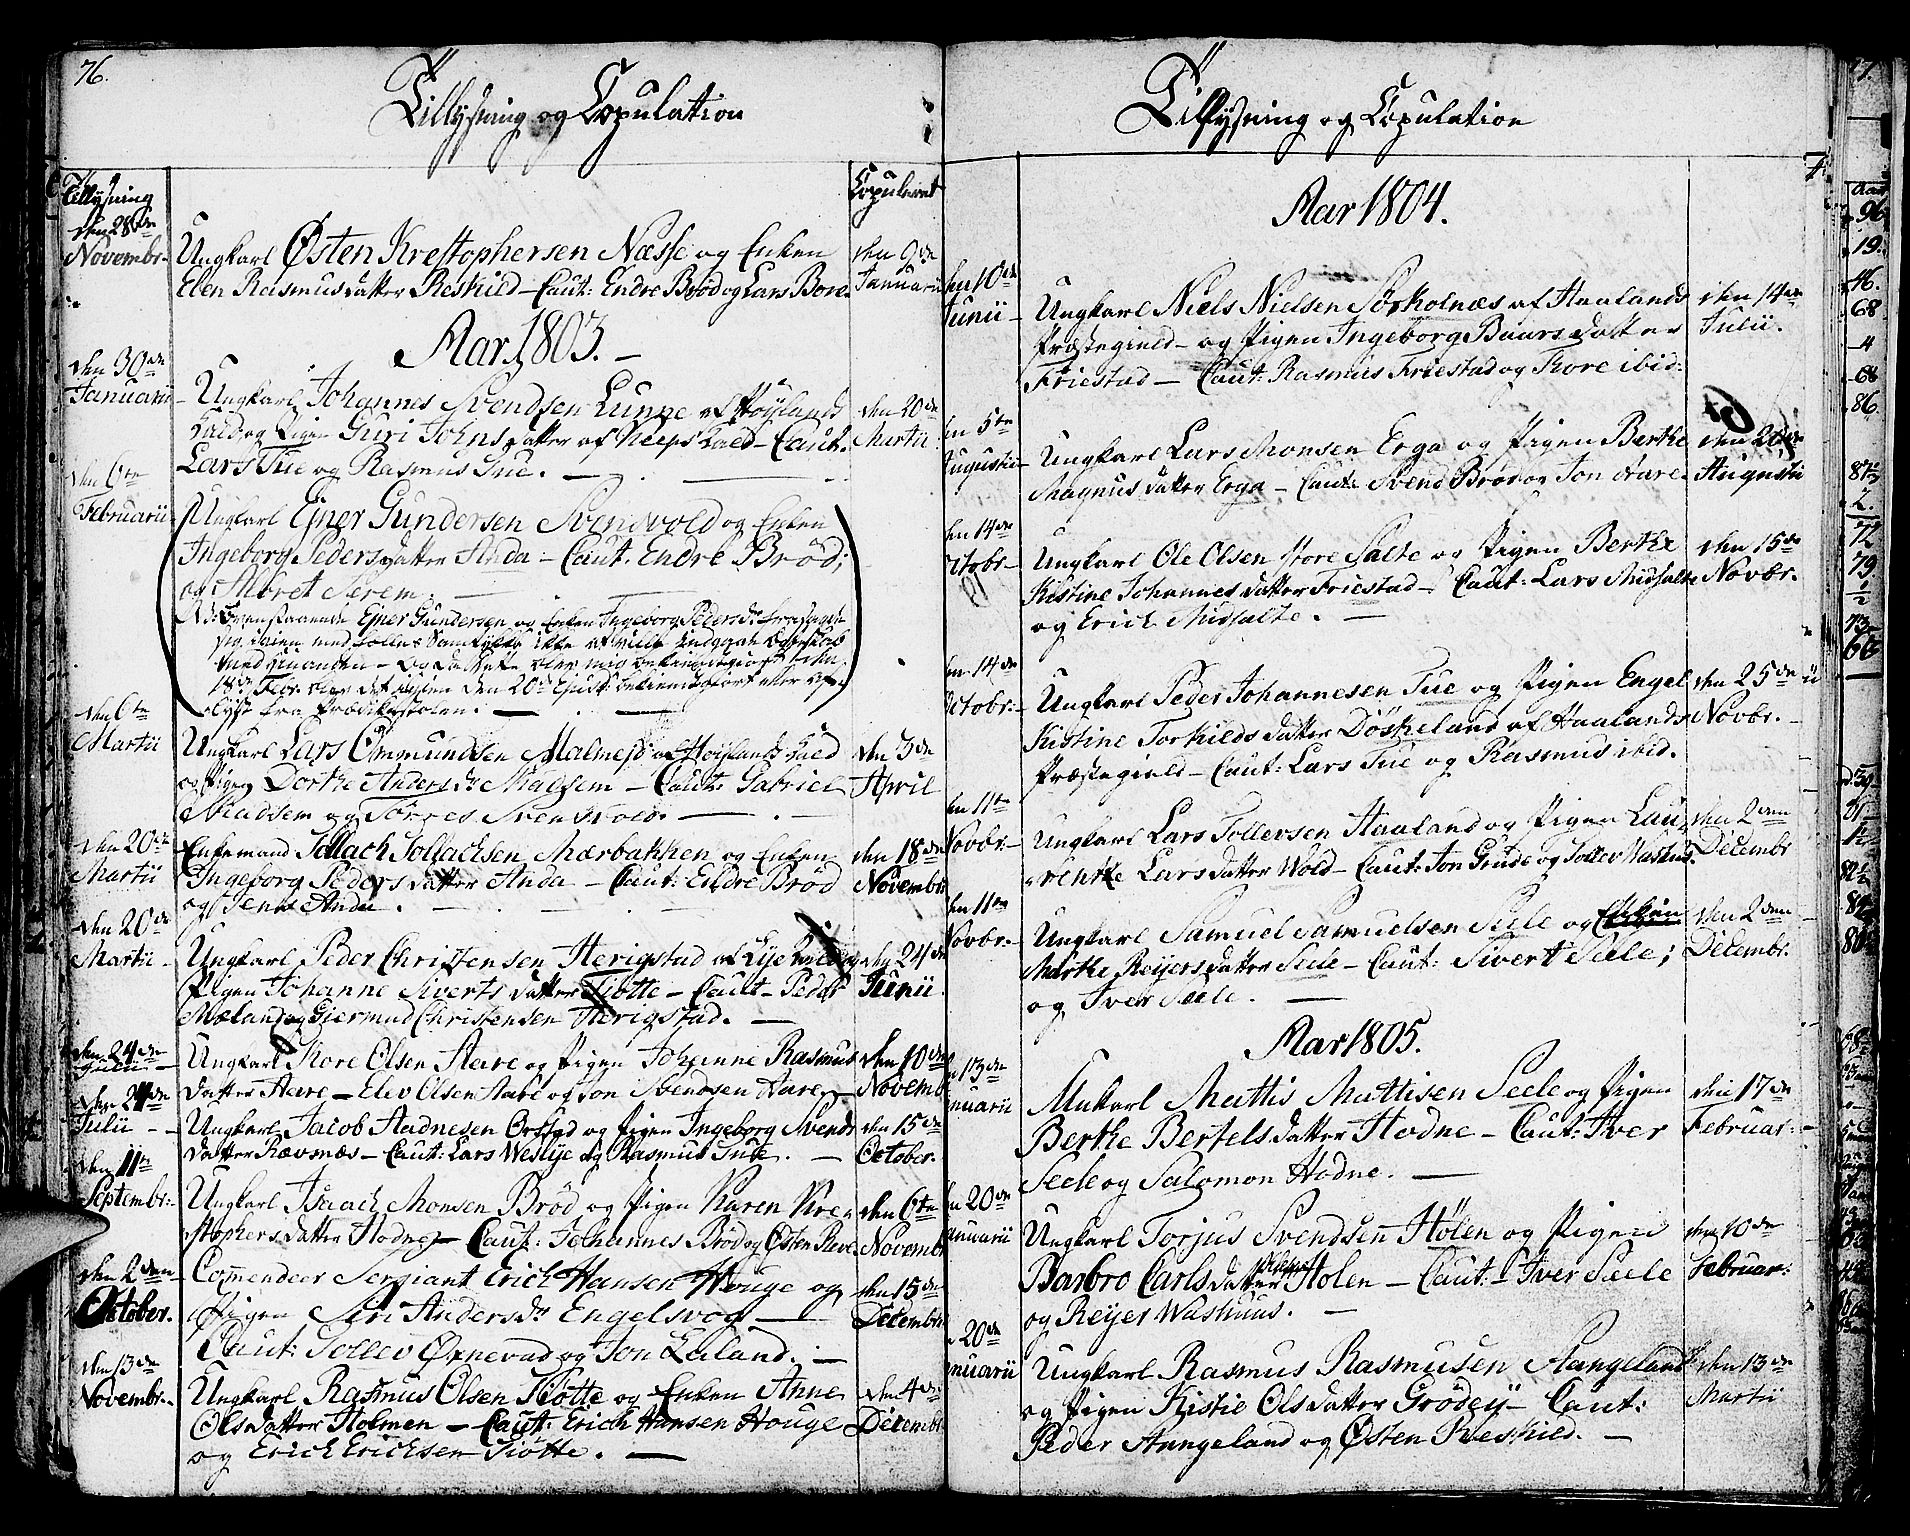 76.
Tillysning og Copulation
Tillysning
Copuleret
den 28de
Novembr.
Ungkarl Østen Krestophersen Næsse og Enken
Elen Rasmusdatter Reskild – Caut: Endre Brød og Lars Bore.
den 9de
Januarii
Aar 1803. –
den 30de
Januarii
Ungkarl Johannes Svendsen Lunne af Høylands
Giæld og Pigen Guri Johnsdatter af Kleps Giæld – Caut:
Lars Tue og Rasmus Tue. –
den 20de
Martii
den 6te
Februarii
Ungkarl Ejner Gundersen Svendvold og Enken
Ingeborg Pedersdatter Anda – Caut. Endre Brød;
og Moret Serem.
Nb: Ovenstaaende Ejner Gundersen og Enken Ingeborg Pedersdr.
med hinanden – Og da dette blev mig bekiendtgiort den
18de Febr. blev det igien den 20de Ejusd: bekiendtgiort eller op-
lyst fra Prædikestolen.
den 6te
Martii
Ungkarl Lars Ommundsen Malmeid af Høylands Giæld
og Pigen Dorthe Andersdr. Madsem – Caut: Gabriel
Madsem og Törres Svensvold. –
den 3de
April
den 20de
Martii
Enkemand Tollach Tollachsen Mærbakken og Enken
Ingeborg Pedersdatter Anda – Caut: Endre Brød
og Jens Anda.
den 18de
Novembr.
den 20de
Martii –
Ungkarl Peder Christensen Herigstad af Lye og
Pigen Johanne Sivertsdatter Tiøtte – Caut – Peder
Mæland og Giermund Christensen Herigstad. –
den 24de
Junii.
den 24de
Julii
Ungkarl Kore Olsen Aare og Pigen Johanne Rasmus
datter Aare – Elev Olsen Aare og Jon Svendsen Hare –
den 10de
Novemb
den 24de
Julii
Ungkarl Jacob Aadnesen Orstad og Pigen Ingeborg Svends
datter Rævnæs – Caut: Lars Weslye og Rasmus Tute. –
den 15de
October.
den 11te
Septembr:
Ungkarl Isaach Monsen Brød og Pigen Karen Kre-
stophersdatter Hodne – Caut: Johannes Brød og Østen Reve
den 6te
Novemb
den 2den
October.
Commendeer Sergiant Erich Hansen Houge og
Pigen Siri Andersdr. Engelsvog –
Caut: Tollev Ørnevad og Jon Laland. –
den 15de
Decembr
den 13de
Novembr.
Ungkarl Rasmus Olsen Tiøtte og Enken Anne
Olsdatter Holmen – Caut: Erich Hansen Houge
og Erich Erichsen Tiötte. –
den 4de
Decembr
Tillysning og Copulation
Aar 1804.
den 10de
Junii –
Ungkarl Niels Nielsen Sörkolnæs af Haalands
Præstegield – og Pigen Ingeborg Baarsdatter
Friestad – Caut: Rasmus Friestad og Tore ibid:
den 14de
Julii.
den 5te
Augustii –
Ungkarl Lars Monsen Erga og Pigen Berthe
Magnusdatter Erga – Caut: Svend Brød og Jon Hare.
den 26de
Augustii
den 14de
Octobr –
Ungkarl Ole Olsen Store Salte og Pigen Berthe
Kistine Johannesdatter Friestad – Caut: Lars Midsalte
og Erich Midsalte. –
den 15de
Novbr.
den 14de
Octobr: –
Ungkarl Peder Johannesen Tue og Pigen Engel
Kistine Torkildsdatter Döskeland af Haalands
Præstegield – Caut: Lars Tue og Rasmus ibid.
den 25de
Novbr. –
den 11te
Novbr. –
Ungkarl Lars Tollevsen Haaland og Pigen Lau-
rentze Larsdatter Wold – Caut: Jon Grude og Tollev Washus.
den 2den
Decembr
den 11te
Novbr. –
Ungkarl Samuel Samuelsen Seele og Enken
Marthe Reijersdatter Seele – Caut: Sivert Seele;
og Iver Seele. –
den 2den
Decembr.
Aar 1805.
13de
nuarii
Unkarl Mattis Mattisen Seele og Pigen
Berthe Bertelsdatter Hodne – Caut: Iver
Seele og Salomon Hodne. –
den 17de
Februar: –
20de
nuarii
Ungkarl Torjus Svendsen Hølen og Pigen
Barbro Carlsdatter Holen – Caut: – Iver Seele
og Reijer Washuus. –
den 10de
Februar:
20de
nuarii
Ungkarl Rasmus Rasmusen Aangeland
og Pigen Kistie Olsdatter Grödey – Caut:
Peder Aangeland og Østen Reeskild. –
den 13de
Martii